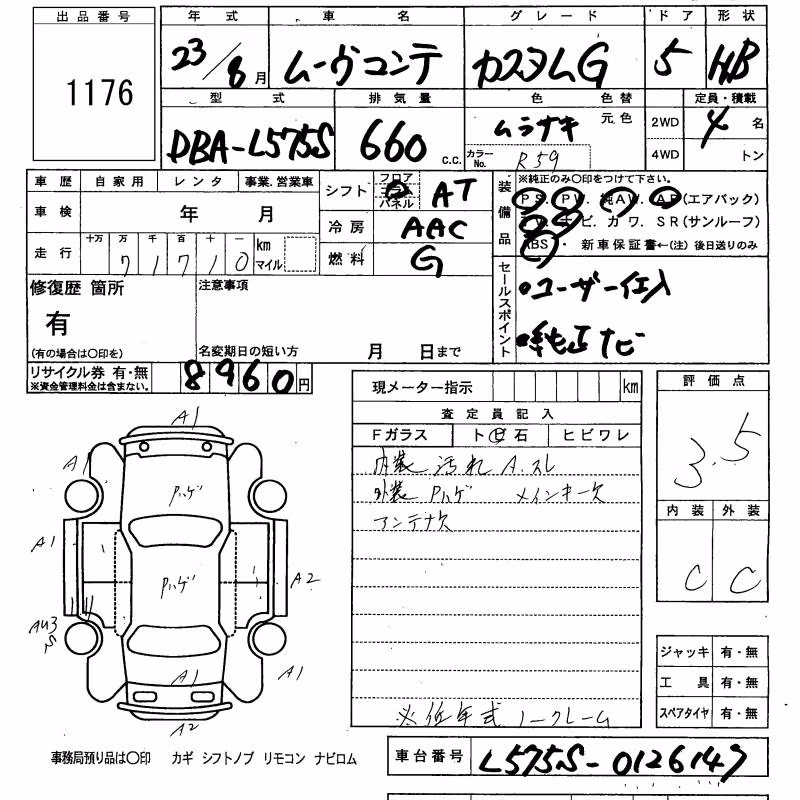 出品番号 年式 車名 グレード ドア 形状
1176 23/8月 ムーヴコンテ カスタムG 5 HB
型式 排気量 色 色替 定員・積載
DBA-L575S 660 C.C. ムラサキ 元色 2WD 4名
カラーNo. R59 4WD トン
車歴 自家用 レンタ 事業.営業車 シフト フロア コラム パネル AT 装備品 ※純正のみ〇印をつけて下さい。
PS. PW. 純AW. AB(エアバック)
車検 年 月 冷房 AAC TV. ナビ. カワ. SR(サンルーフ)
走行 十万 万 千 百 十 一 km マイル 燃料 G ABS・ 新車保証書←(注) 後日送りのみ
71710
修復歴 箇所 注意事項 セールスポイント ・ユーザー仕入
有 ・純正ナビ
(有の場合は〇印を) 名変期日の短い方 月 日まで
リサイクル券 有・無 8960円
※資金管理料金は含まない。
現メーター指示 km 評価点
査定員記入 3.5
Fガラス ト ビ 石 ヒビワレ
内装 汚れ A.スレ
外装 Pハゲ メインキー欠
アンテナ欠
内装 外装
C C
A1
A1
Pハゲ
A1
Pハゲ
A2
AU3
S
A1
A1
A2
ジャッキ 有・無
工具 有・無
スペアタイヤ 有・無
※低年式 ノークレーム
事務局預り品は〇印 カギ シフトノブ リモコン ナビロム 車台番号 L575S-0126147